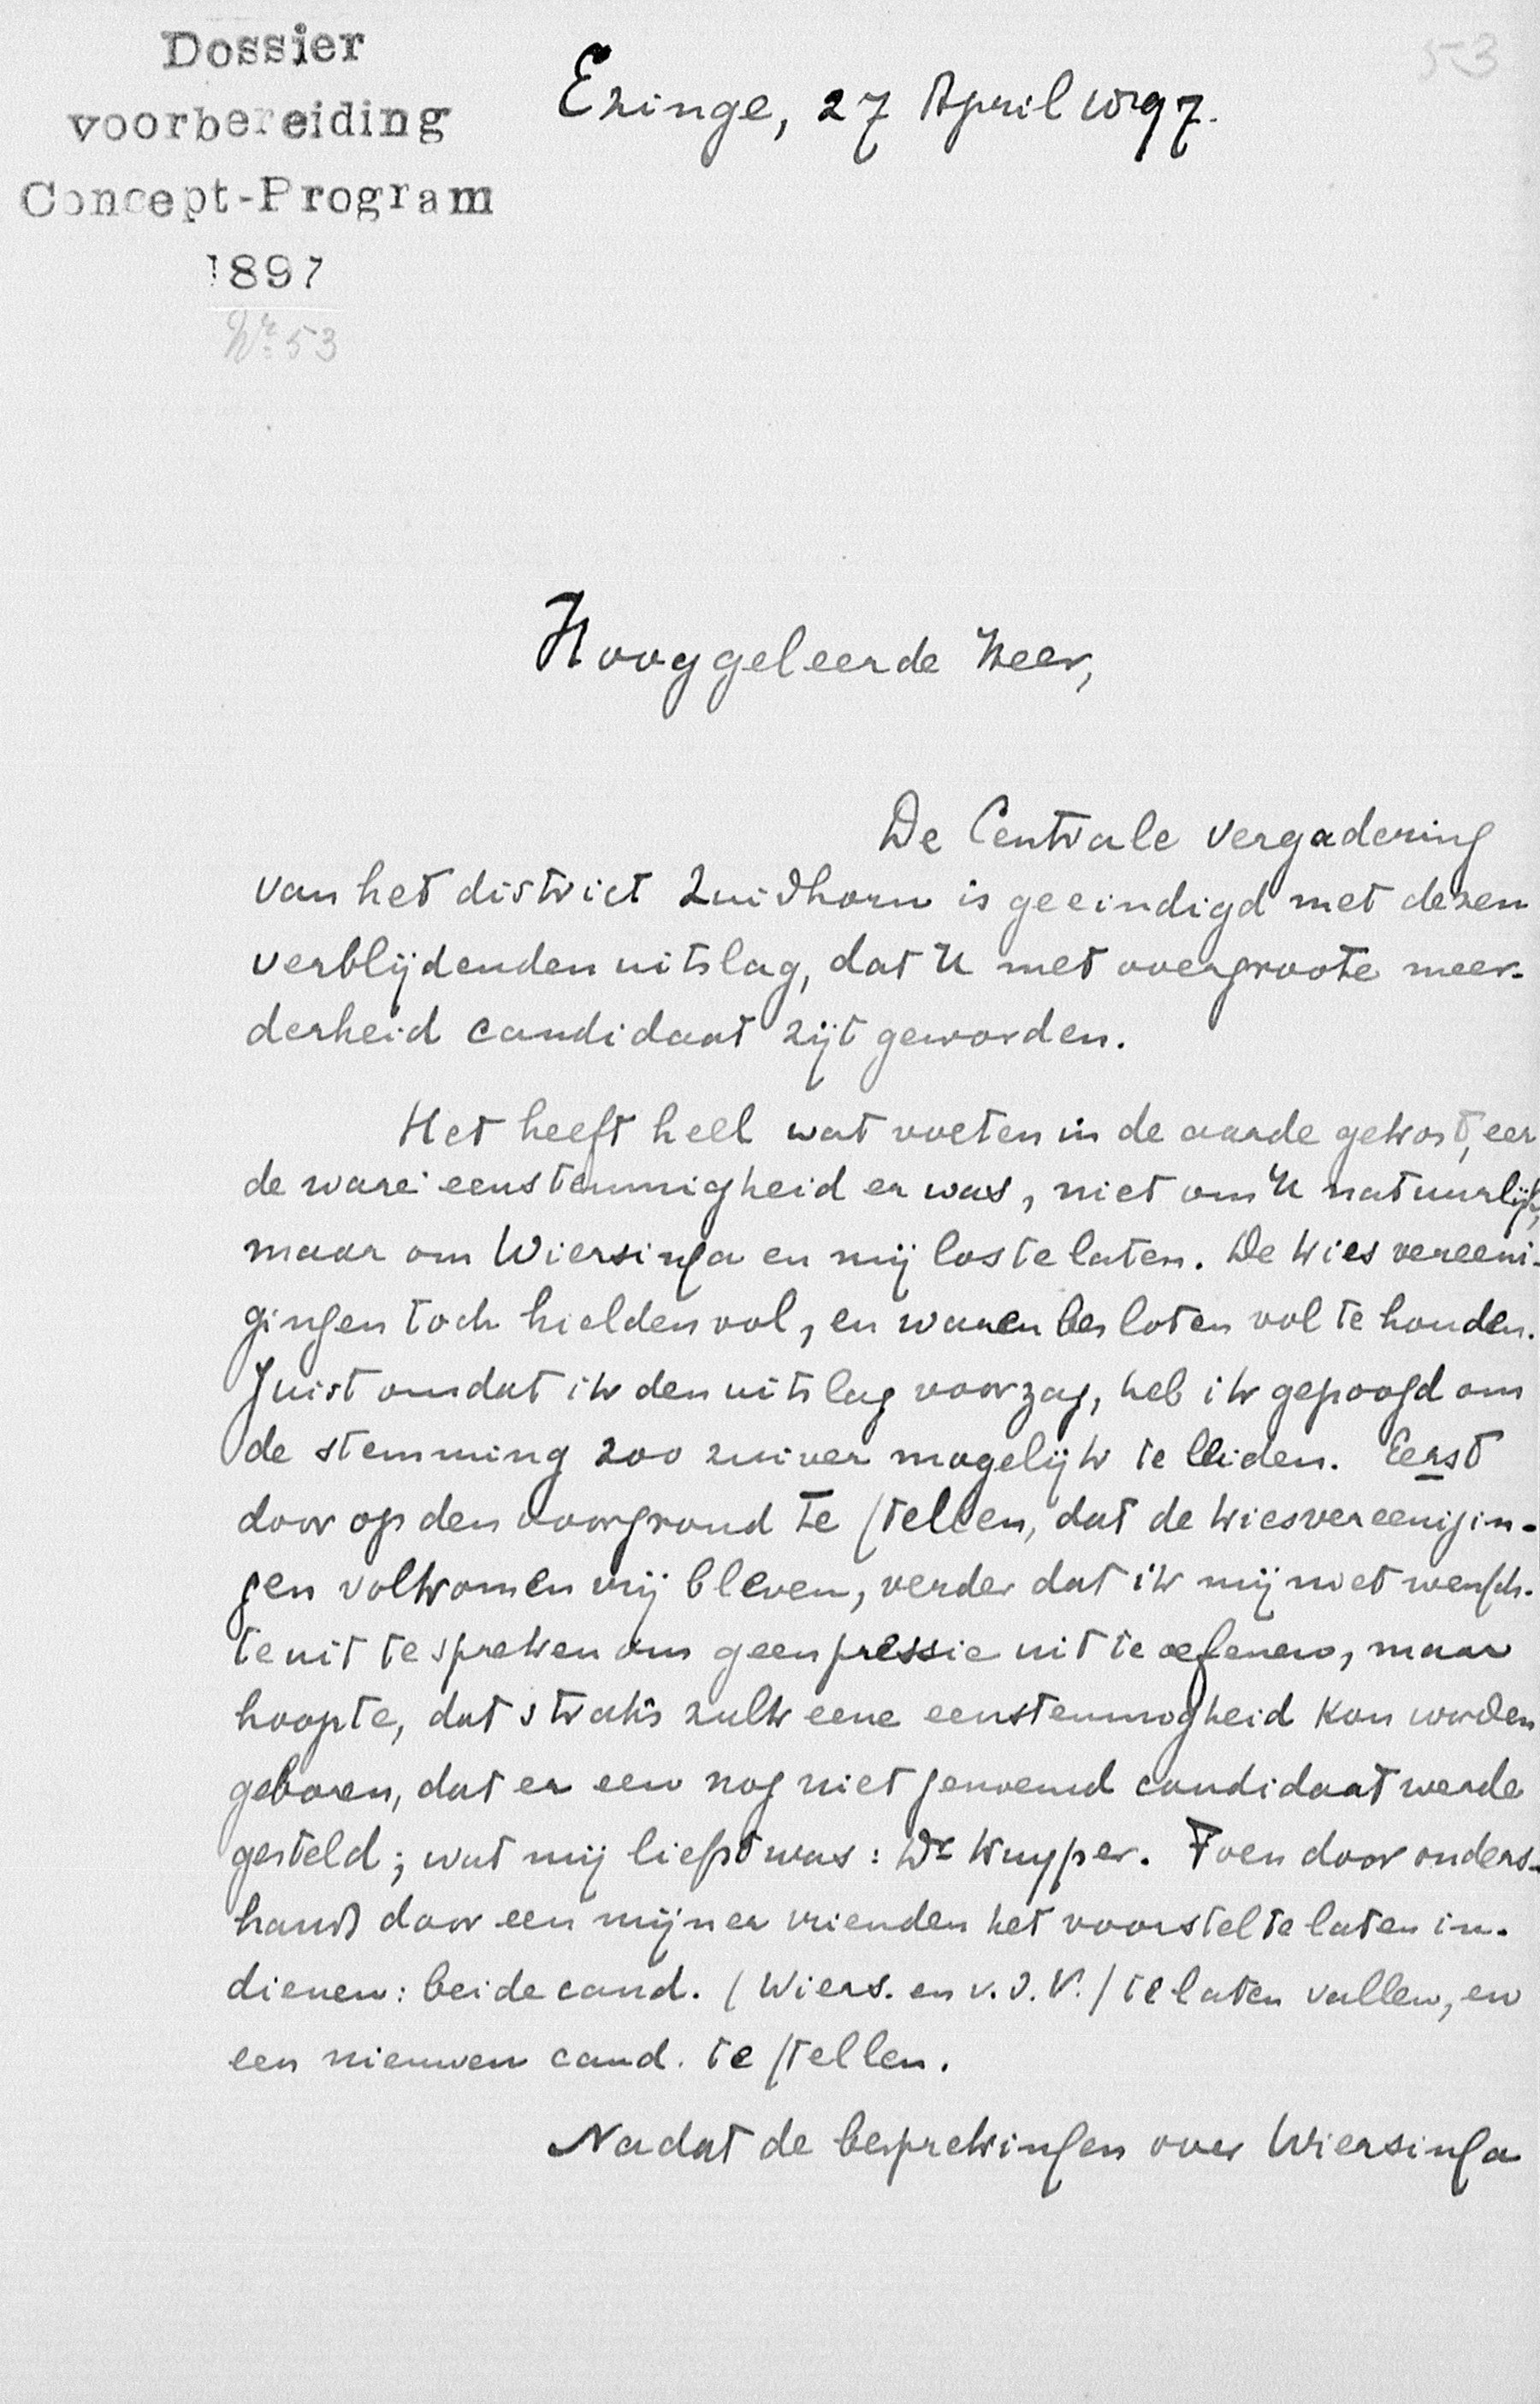 53
Dossier
voorbereiding
Concept-Program
1897
Nr. 53
Ezinge, 27 April 1897.
Hooggeleerde Heer,
De Centrale vergadering
van het district Zuidhorn is geeindigd met dezen
verblijdenden uitslag, dat U met overgroote meer-
derheid candidaat zijt geworden.
Het heeft heel wat voeten in de aarde gekost, eer
de ware eenstemmigheid er was, niet om U natuurlijk,
maar om Wiersinga en mij los te laten. De Kiesvereeni-
gingen toch hielden vol, en waren besloten vol te houden.
Juist omdat ik den uitslag voorzag, heb ik gepoogd om
de stemming zoo zuiver mogelijk te leiden. Eerst
door op den voorgrond te stellen, dat de kiesvereenigin-
gen volkomen vrij bleven, verder dat ik mij niet wensch-
te uit te spreken om geen pressie uit te oefenen, maar
hoopte, dat straks zulk eene eenstemmigheid kon worden
geboren, dat er een nog niet genoemd candidaat werde
gesteld; wat mij liefst was: Dr Kuyper. Toen door onders-
hands door een mijner vrienden het voorstel te laten in-
dienen: beide cand. (Wiers. en v. d. V.) te laten vallen, en
een nieuwen cand. te stellen.
Nadat de besprekingen over Wiersinga